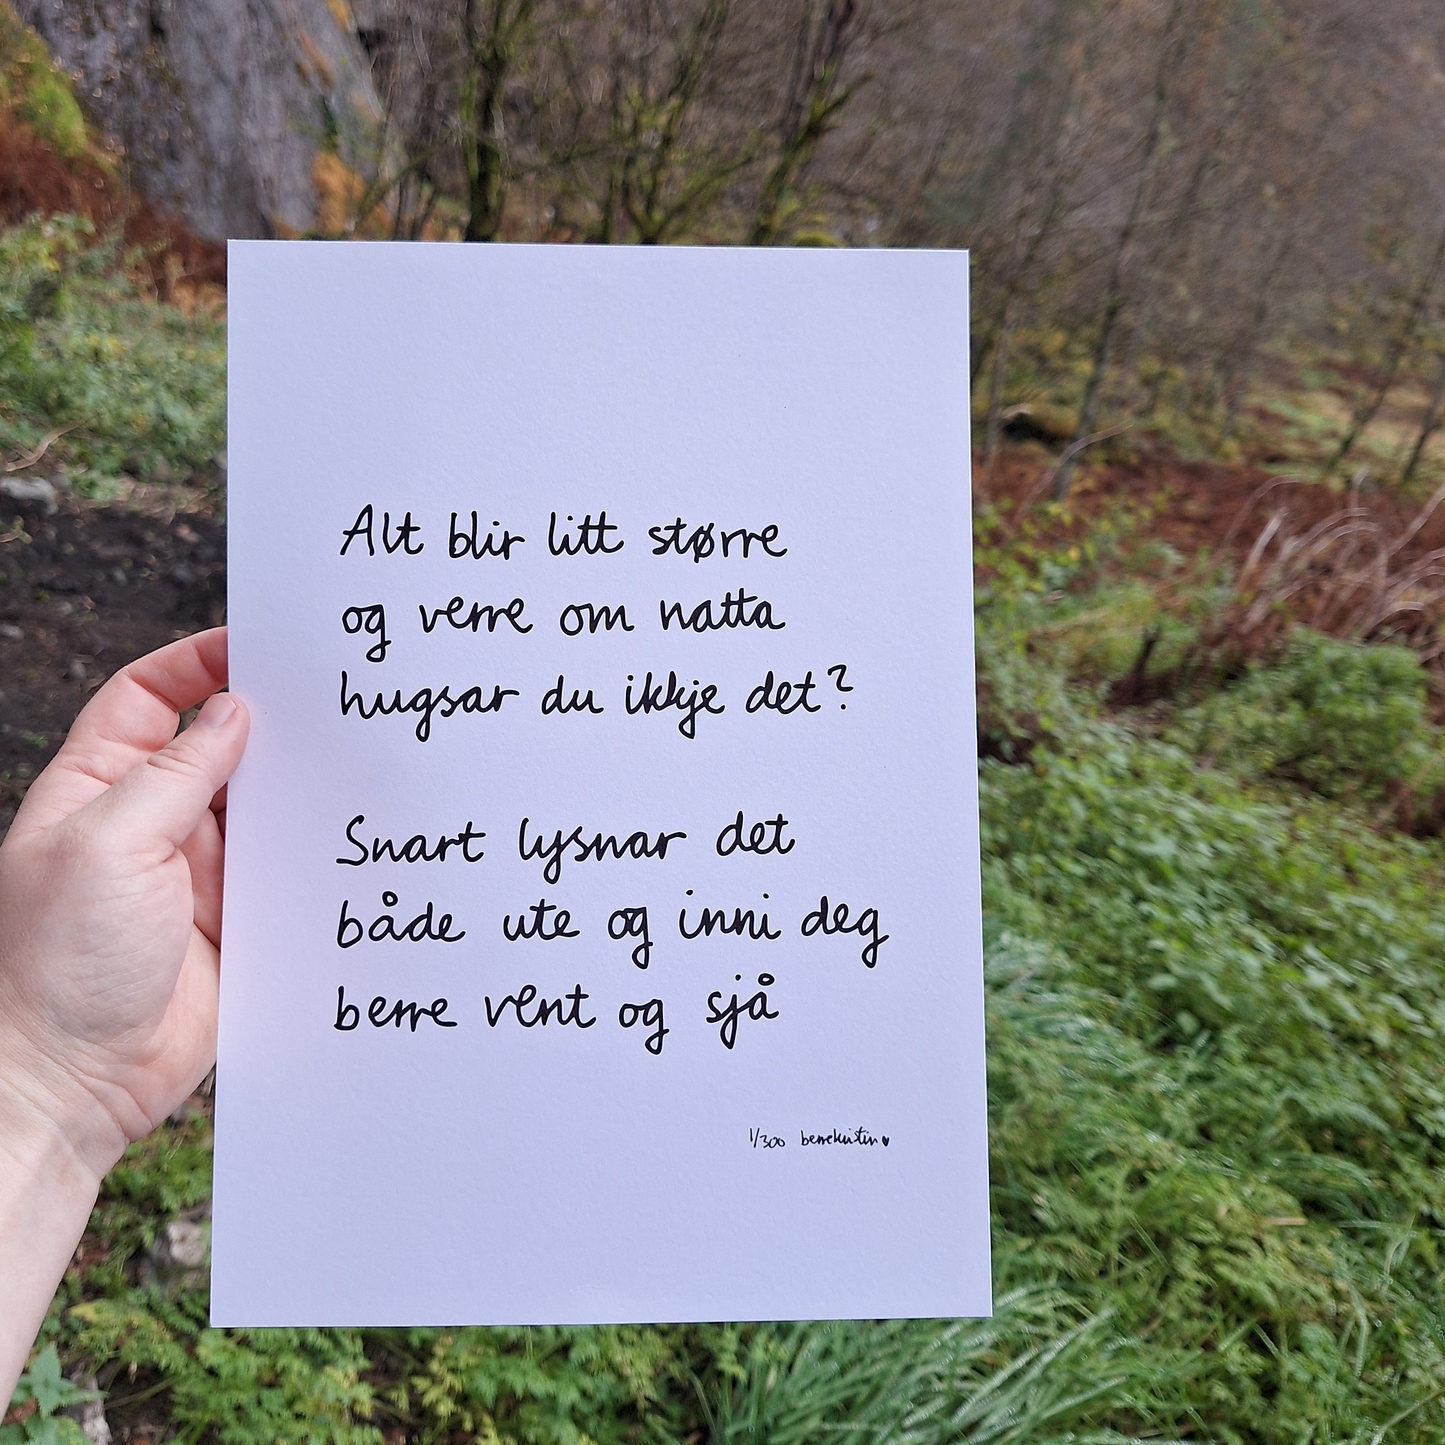 Alt blir litt større
og verre om natta
hugsar du ikkje det?
Snart lysnar det
både ute og inni deg
berre vent og sjå
1/300 berrekristin♥